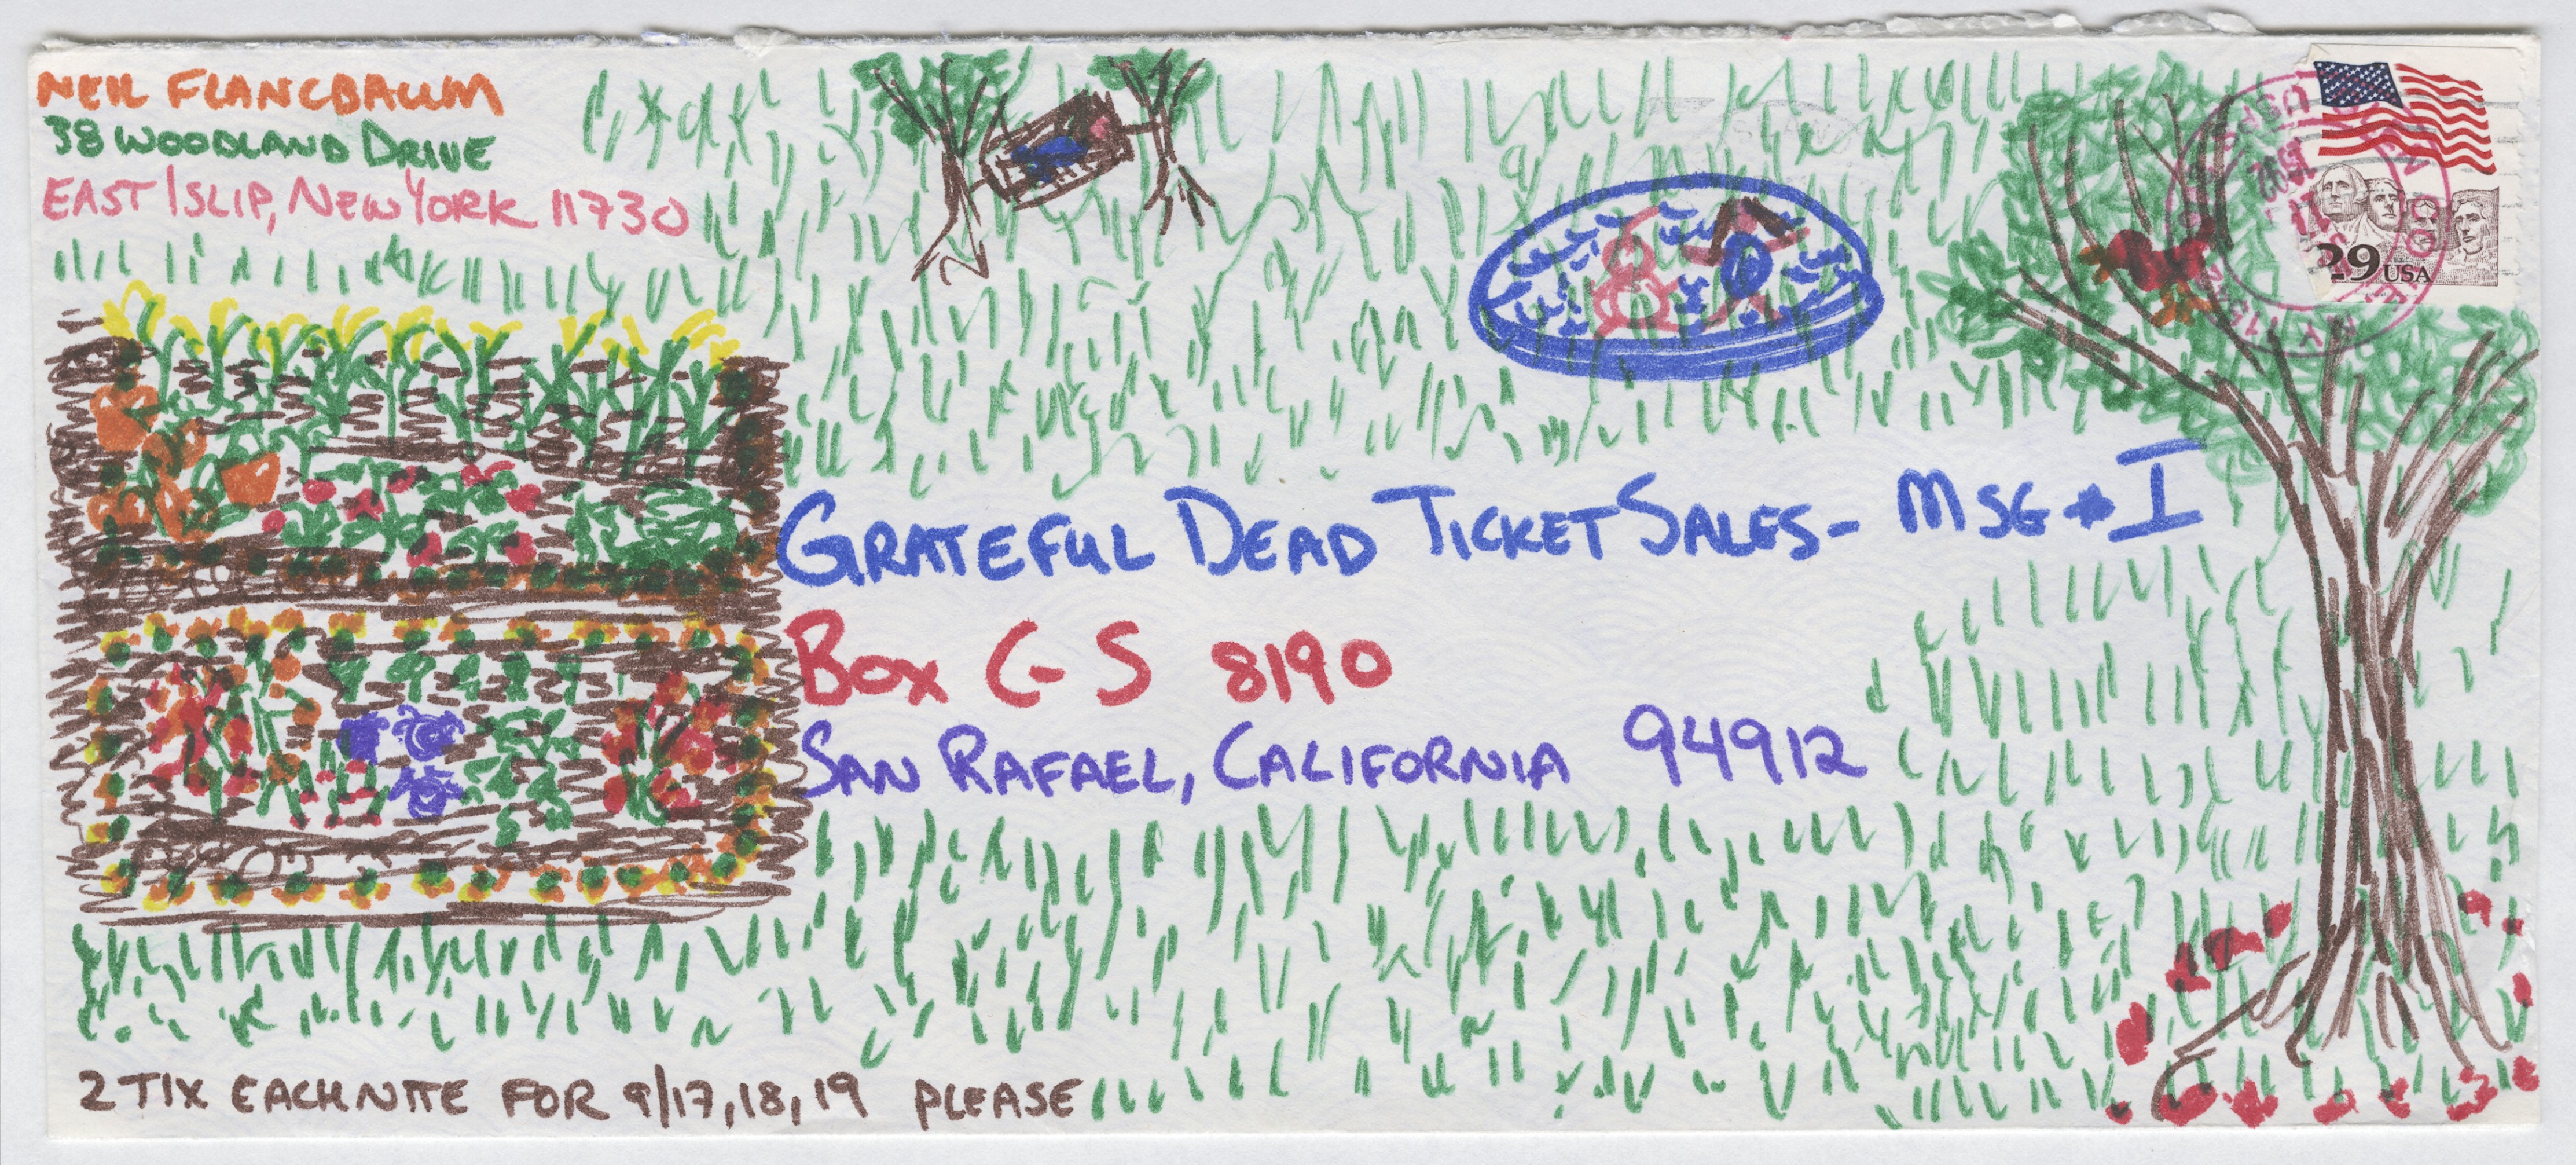 NEIL FLANCBAUM
38 WOODLAND DRIVE
EAST ISLIP, NEW YORK 11730
29 USA
GRATEFUL DEAD TICKET SALES - MSG #I
BOX C-S 8190
SAN RAFAEL, CALIFORNIA 94912
2 TIX EACH NITE FOR 9/17,18,19 PLEASE